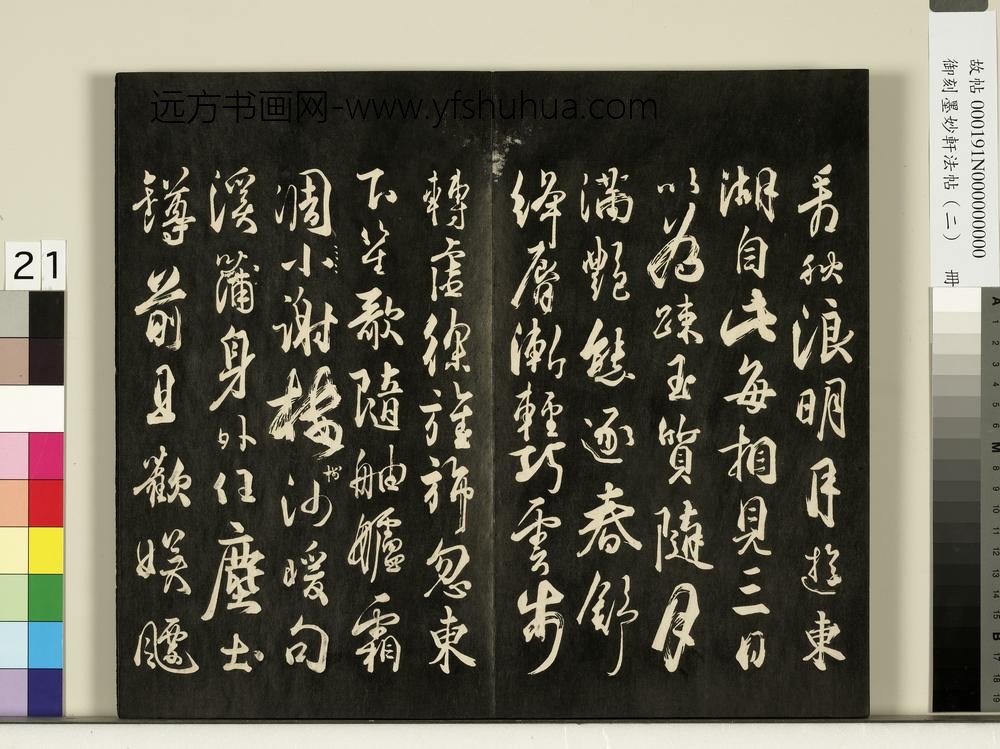 远方书画网-www.yfshuhua.com
看秋浪明月遊東
湖自此每相見三日
以為踈玉質隨月
滿艷態逐春舒
絳脣漸輕巧雲步
轉虛徐旌旆忽東
下笙歌隨舳艫霜
凋小謝樓樹沙暖句
溪蒲身外任塵土
罇前且歡娛飄
故帖 000191N000000000
御刻墨妙軒法帖（二） 冊
21